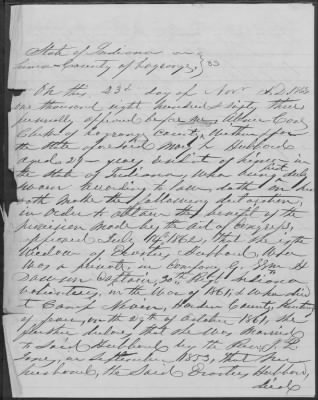 State of Indiana
County of Lagrange, } SS
On this 23d day of Nov. A.D. 1863
one thousand eight hundred & Sixty three
personally appeared before me,
Clerk of Lagrange County, within & for
the State aforesaid Mary L Hubbard
aged 29 years
the State of Indiana, Who being first duly
Sworn according to law, doth on her
oath Make the following declaration,
in Order to Obtain the benefit of the
provision Made by the Act of Congress,
approved July 14th 1862, that She is the
Widow of Hubbard, Who
Was a private, in Company G, Wm H
Dawson Captain, 30th Regt Indiana
Volunteers, in the War of 1861, & Who died
at Camp Nevin, Hardin County, Kentucky
on the 29th of October 1861, She
further declares that She Was Married
to Said Hubbard by the Rev. J. P.
Jones, on September 1853, that her
husband, the Said Hubbard,
died